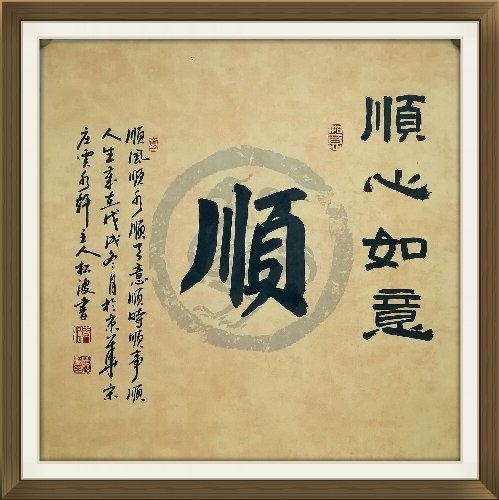 順心如意
順
順風順水順天意順時順事順
人生歲在戊戌冬月於京華宗
庄雲水軒主人松波書